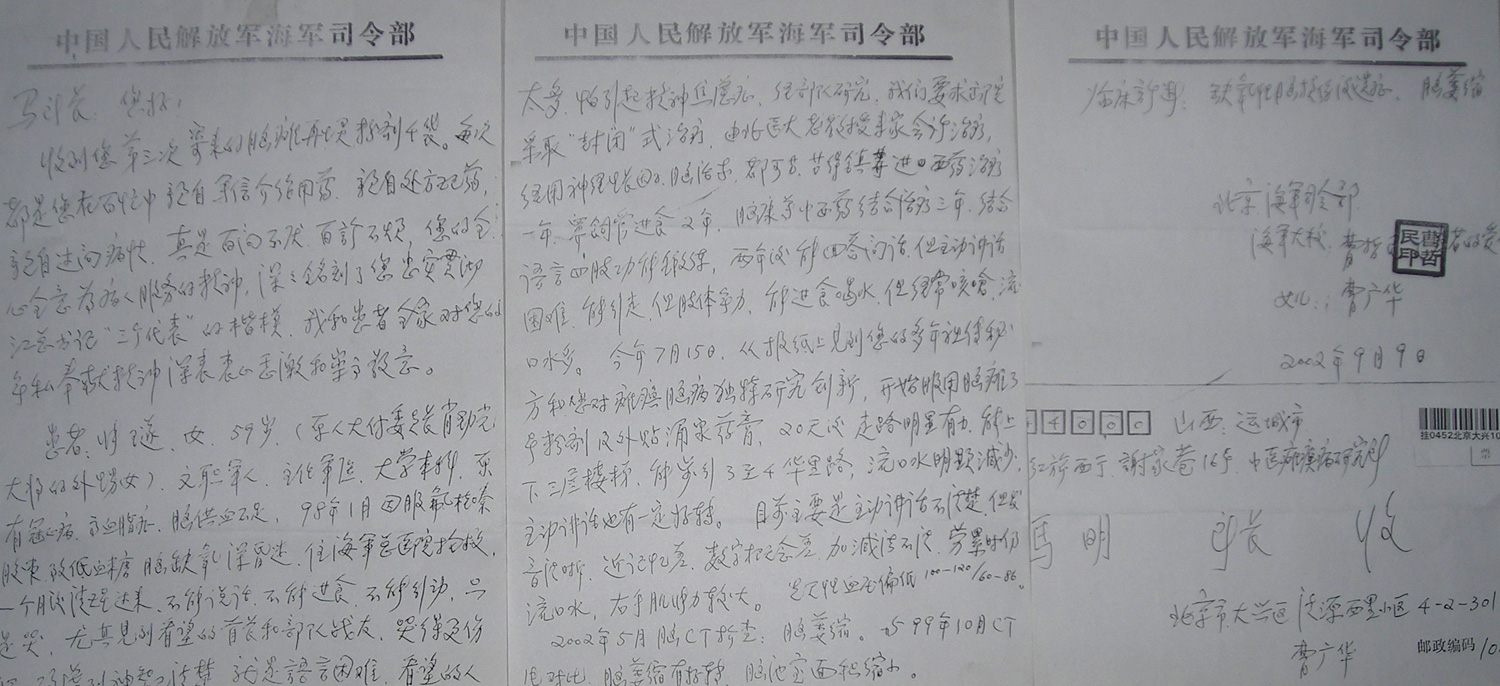 中国人民解放军海军司令部
马所长：您好！
收到您第三次寄来的脑瘫再 粉剂 袋。每次
都是您在百忙中亲自 信介绍用药、亲自处方配药，
亲自过问病情，真是百问不厌、百 不烦，您的全
心全意为病人服务的精神，深深铭刻了您忠实贯彻
江总书记“三个代表”的楷模，我和患者全家对您的
无私奉献精神深表衷心感激和崇高敬意。
患者： 女、59岁、（原人大付委员长肖劲光
大将的外甥女）文职军人、主任军医、大学本科、原
有冠心病、高血脂症、脑供血不足，98年1月因服
胶囊致低血糖脑缺氧深昏迷，住海军总医院抢救，
一个月后清醒过来、不能说话、不能进食、不能行动，只
是哭，尤其见到看望的首长和部队战友，哭得更伤
神智清楚 就是語言困难，看望的人
中国人民解放军海军司令部
太多，怕引起精神焦虑症，经部队研究，我们要求医院
采取“封闭”式治疗，由北医大老教授专家会诊治疗，
经用神经生长因子、脑活素、都可喜、 进口西药治疗
一年、鼻饲管进食2年， 中西药结合治疗三年，结合
语言四肢功能锻炼，两年后能回答问话，但主动讲话
困难，能行走，但肢体无力，能进食喝水，但经常咳嗆，流
口水多。今年7月15日，从报纸上见到您的多年祖传秘
方和您对瘫痪脑病独特研究创新，开始服用脑瘫
粉剂及外贴 药膏，20天后走路明显有力，能上
下三层楼梯，能步行3至4华里路，流口水明显减少，
主动讲话也有一定好转。目前主要是主动讲话不清楚，但发
音清晰，近记忆差，数字概念差，加减法不清，劳累时仍
流口水，右手肌张力较大。 血压偏低100-120/60-86。
2002年5月脑CT检查：脑萎缩。与99年10月CT
片对比，脑萎缩有好转，脑池室面积缩小。
中国人民解放军海军司令部
临床诊断：缺氧性脑 后遗症、脑萎缩
北京海军司令部
海军大校：曹哲
曹哲民印
女儿：曹广华
2002年9月9日
4 0 0 0 山西：运城市
红旗西 谢家巷16号、中医瘫痪病研究所
馬明 所长 收
挂0452北京大兴10
票
北京市大兴区 清源西里小区4-2-301
曹广华
邮政编码/0